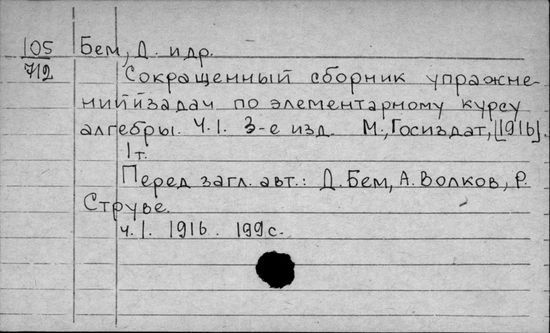 105 Бем, Д. и др.
712 Сокращенный сборник упражне-
ний и задач по элементарному курсу
алгебры. Ч.1. 3-е изд. М., Госиздат, [1916].
1 т.
Перед загл. авт.: Д. Бем, А. Волков, Р.
Струве.
ч.1. 1916. 199 с.